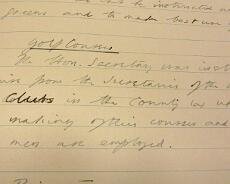 can be instructed
greens and to make best use
Golf Courses
The Hon. Secretary was inst
from the Secretaries of the
Clubs in the County as
making of their courses and
men are employed.